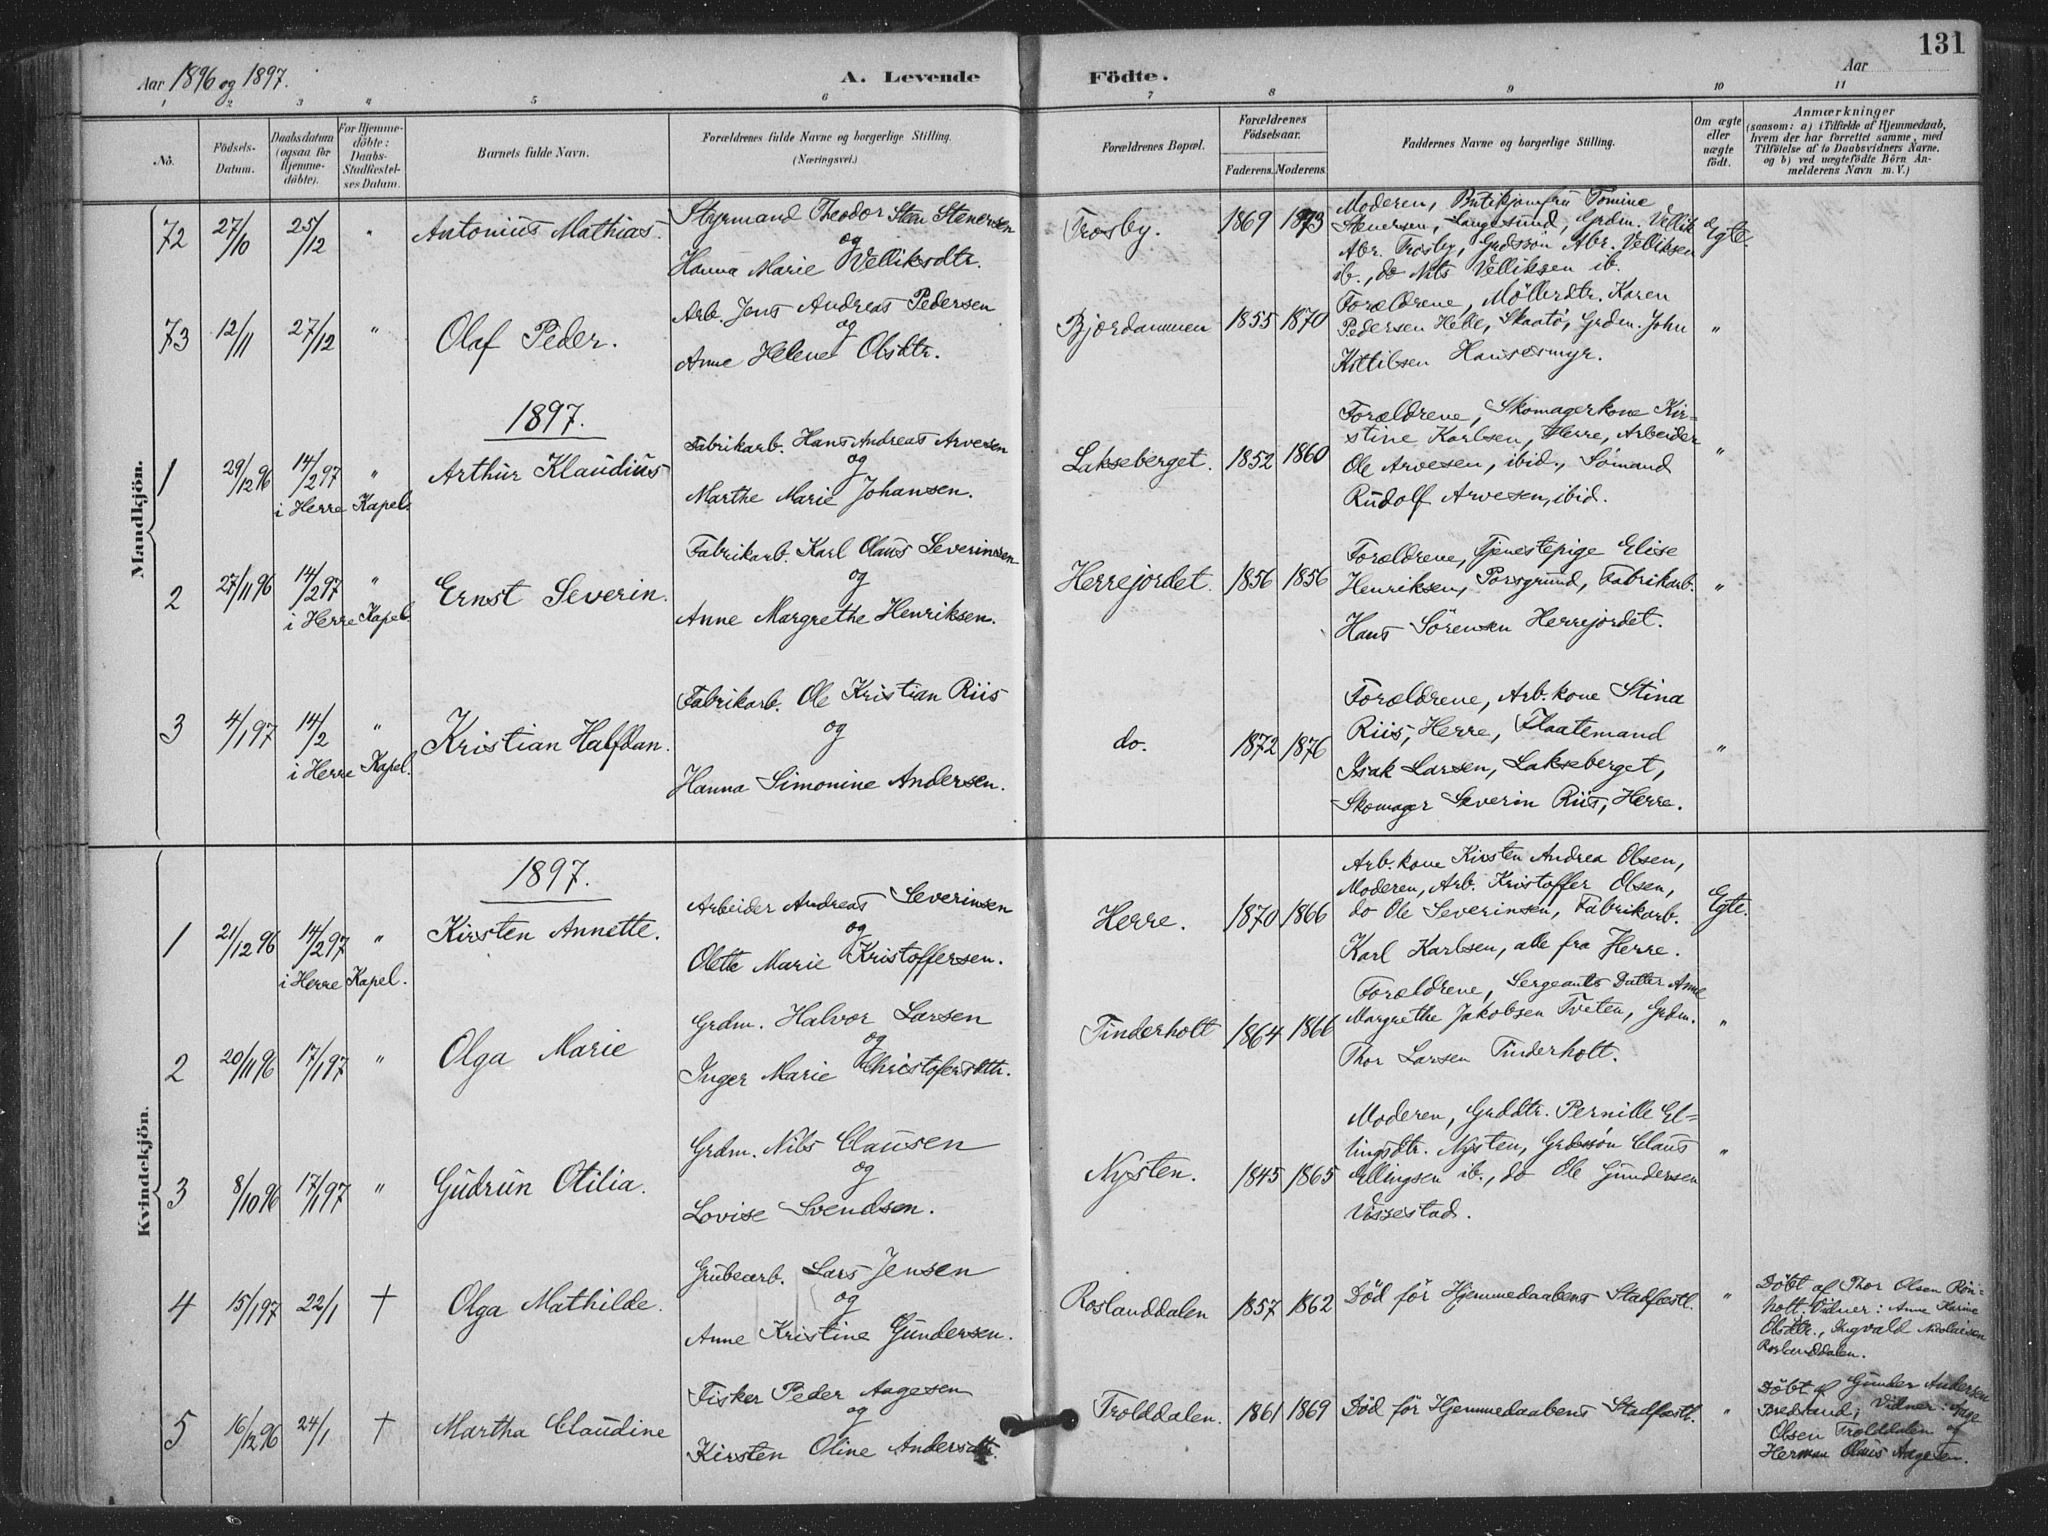 131
Aar 1896 og 1897.
A. Levende Födte.
Aar
1 2 3 " 5 6 7 8 9 10 11
No.
Födsels-
Datum.
Daabsdatum
(ogsaa for
Hjemme-
döbte).
For Hjemme-
döbte:
Daabs-
Stadfæstel-
ses Datum.
Barnets fulde Navn.
Forældrenes fulde Navne og borgerlige Stilling.
(Næringsvei.)
Forældrenes Bopæl.
Forældrenes
Födselsaar.
Faderens. Moderens.
Faddernes Navne og borgerlige Stilling.
Om ægte
eller
uægte
födt.
Anmærkninger
(saasom: a) i Tilfælde af Hjemmedaab,
hvem der har forrettet samme, med
Tilföielse af to Daabsvidners Navne,
og b) ved uægtefödte Börn An-
melderens Navn m. V.)
Mandkjön.
72 27/10 25/12 " Antonius Mathias.
Styrmand Theodor Sten Stenersen
og
Hanna Marie Velliksdtr.
Trosby. 1869 1873
Moderen, Butikjomfru Tomine
Stenersen, Langesund, Grdm. Vellik
Abr. Trosby, Grdssøn Abr. Velliksen
ib., do Nils Velliksen ib.
Egte
73 12/11 27/12 " Olaf Peder.
Arb. Jens Andreas Pedersen
og
Anne Helene Olsdtr.
Bjordammen 1855 1870
Forældrene, Möllerdtr. Karen
Pedersen Helle, Skaatö, Grdm. John
Kittilsen Hansesmyr.
"
1897.
1 29/12 96 14/2 97 "
i Herre Kapel.
Arthur Klaudius
Fabrikarb. Hans Andreas Arvesen
og
Marthe Marie Johansen.
Lakseberget. 1852 1860
Forældrene, Skomagerkone Kir=
stine Karlsen, Herre, Arbeider
Ole Arvesen, ibid., Sömand
Rudolf Arvesen, ibid.
"
2 27/11 96 14/2 97 "
i Herre Kapel.
Ernst Severin.
Fabrikarb. Karl Olaus Severinsen
og
Anne Margrethe Henriksen.
Herrejordet. 1856 1856
Forældrene, Tjenestepige Elise
Henriksen, Porsgrund, Fabrikarb.
Hans Sörensen Herrejordet.
"
3 4/1 97 14/2 "
i Herre Kapel.
Kristian Halfdan.
Fabrikarb. Ole Kristian Riis
og
Hanna Simonine Andersen.
do. 1872 1876
Forældrene, Arb. kone Stina
Riis, Herre, Flaatemand
Isak Larsen, Lakseberget,
Skomager Severin Riis, Herre.
"
Kvindekjön.
1897.
1 21/12 96 14/2 97 "
i Herre Kapel.
Kirsten Annette.
Arbeider Andreas Severinsen
og
Olette Marie Kristoffersen.
Herre. 1870 1866
Arb. kone Kirsten Andrea Olsen,
Moderen, Arb. Kristoffer Olsen,
do Ole Severinsen, Fabrikarb.
Karl Karlsen, alle fra Herre.
Egte.
2 20/11 96 17/1 97 " Olga Marie
Grdm. Halvor Larsen
og
Inger Marie Christofersdtr.
Tinderholt 1864 1866
Forældrene, Sergeants Datter Anne
Margrethe Jakobsen Tveten, Grdm.
Thor Larsen Tinderholt.
"
3 8/10 96 17/1 97 " Gudrun Otilia.
Grdm. Nils Clausen
og
Lovise Svendsen.
Nysten. 1845 1865
Moderen, Grddtr. Pernille El=
lingsdtr. Nysten, Grdssøn Claus
Ellingsen ib., do Ole Gundersen
Vissestad.
"
4 15/1 97 22/1 † Olga Mathilde.
Grubearb. Lars Jensen
og
Anne Kristine Gundersen.
Roslanddalen 1857 1862
Död før Hjemmedaabens Stadfæstl.
"
Döbt af Thor Olsen Rön-
holt. Vidner: Anne Karine
Olsdtr., Ingvald Nicolaisen
Roslanddalen.
5 16/12 96 24/1 † Martha Claudine
Fisker Peder Aagesen
og
Kirsten Oline Andersdtr.
Trolddalen. 1861 1869
Död før Hjemmedaabens Stadfæstl.
"
Döbt af Gunder Andersen
Bredstrand; Vidner: Aage
Olsen Trolddalen og
Herman Olaus Aagesen.